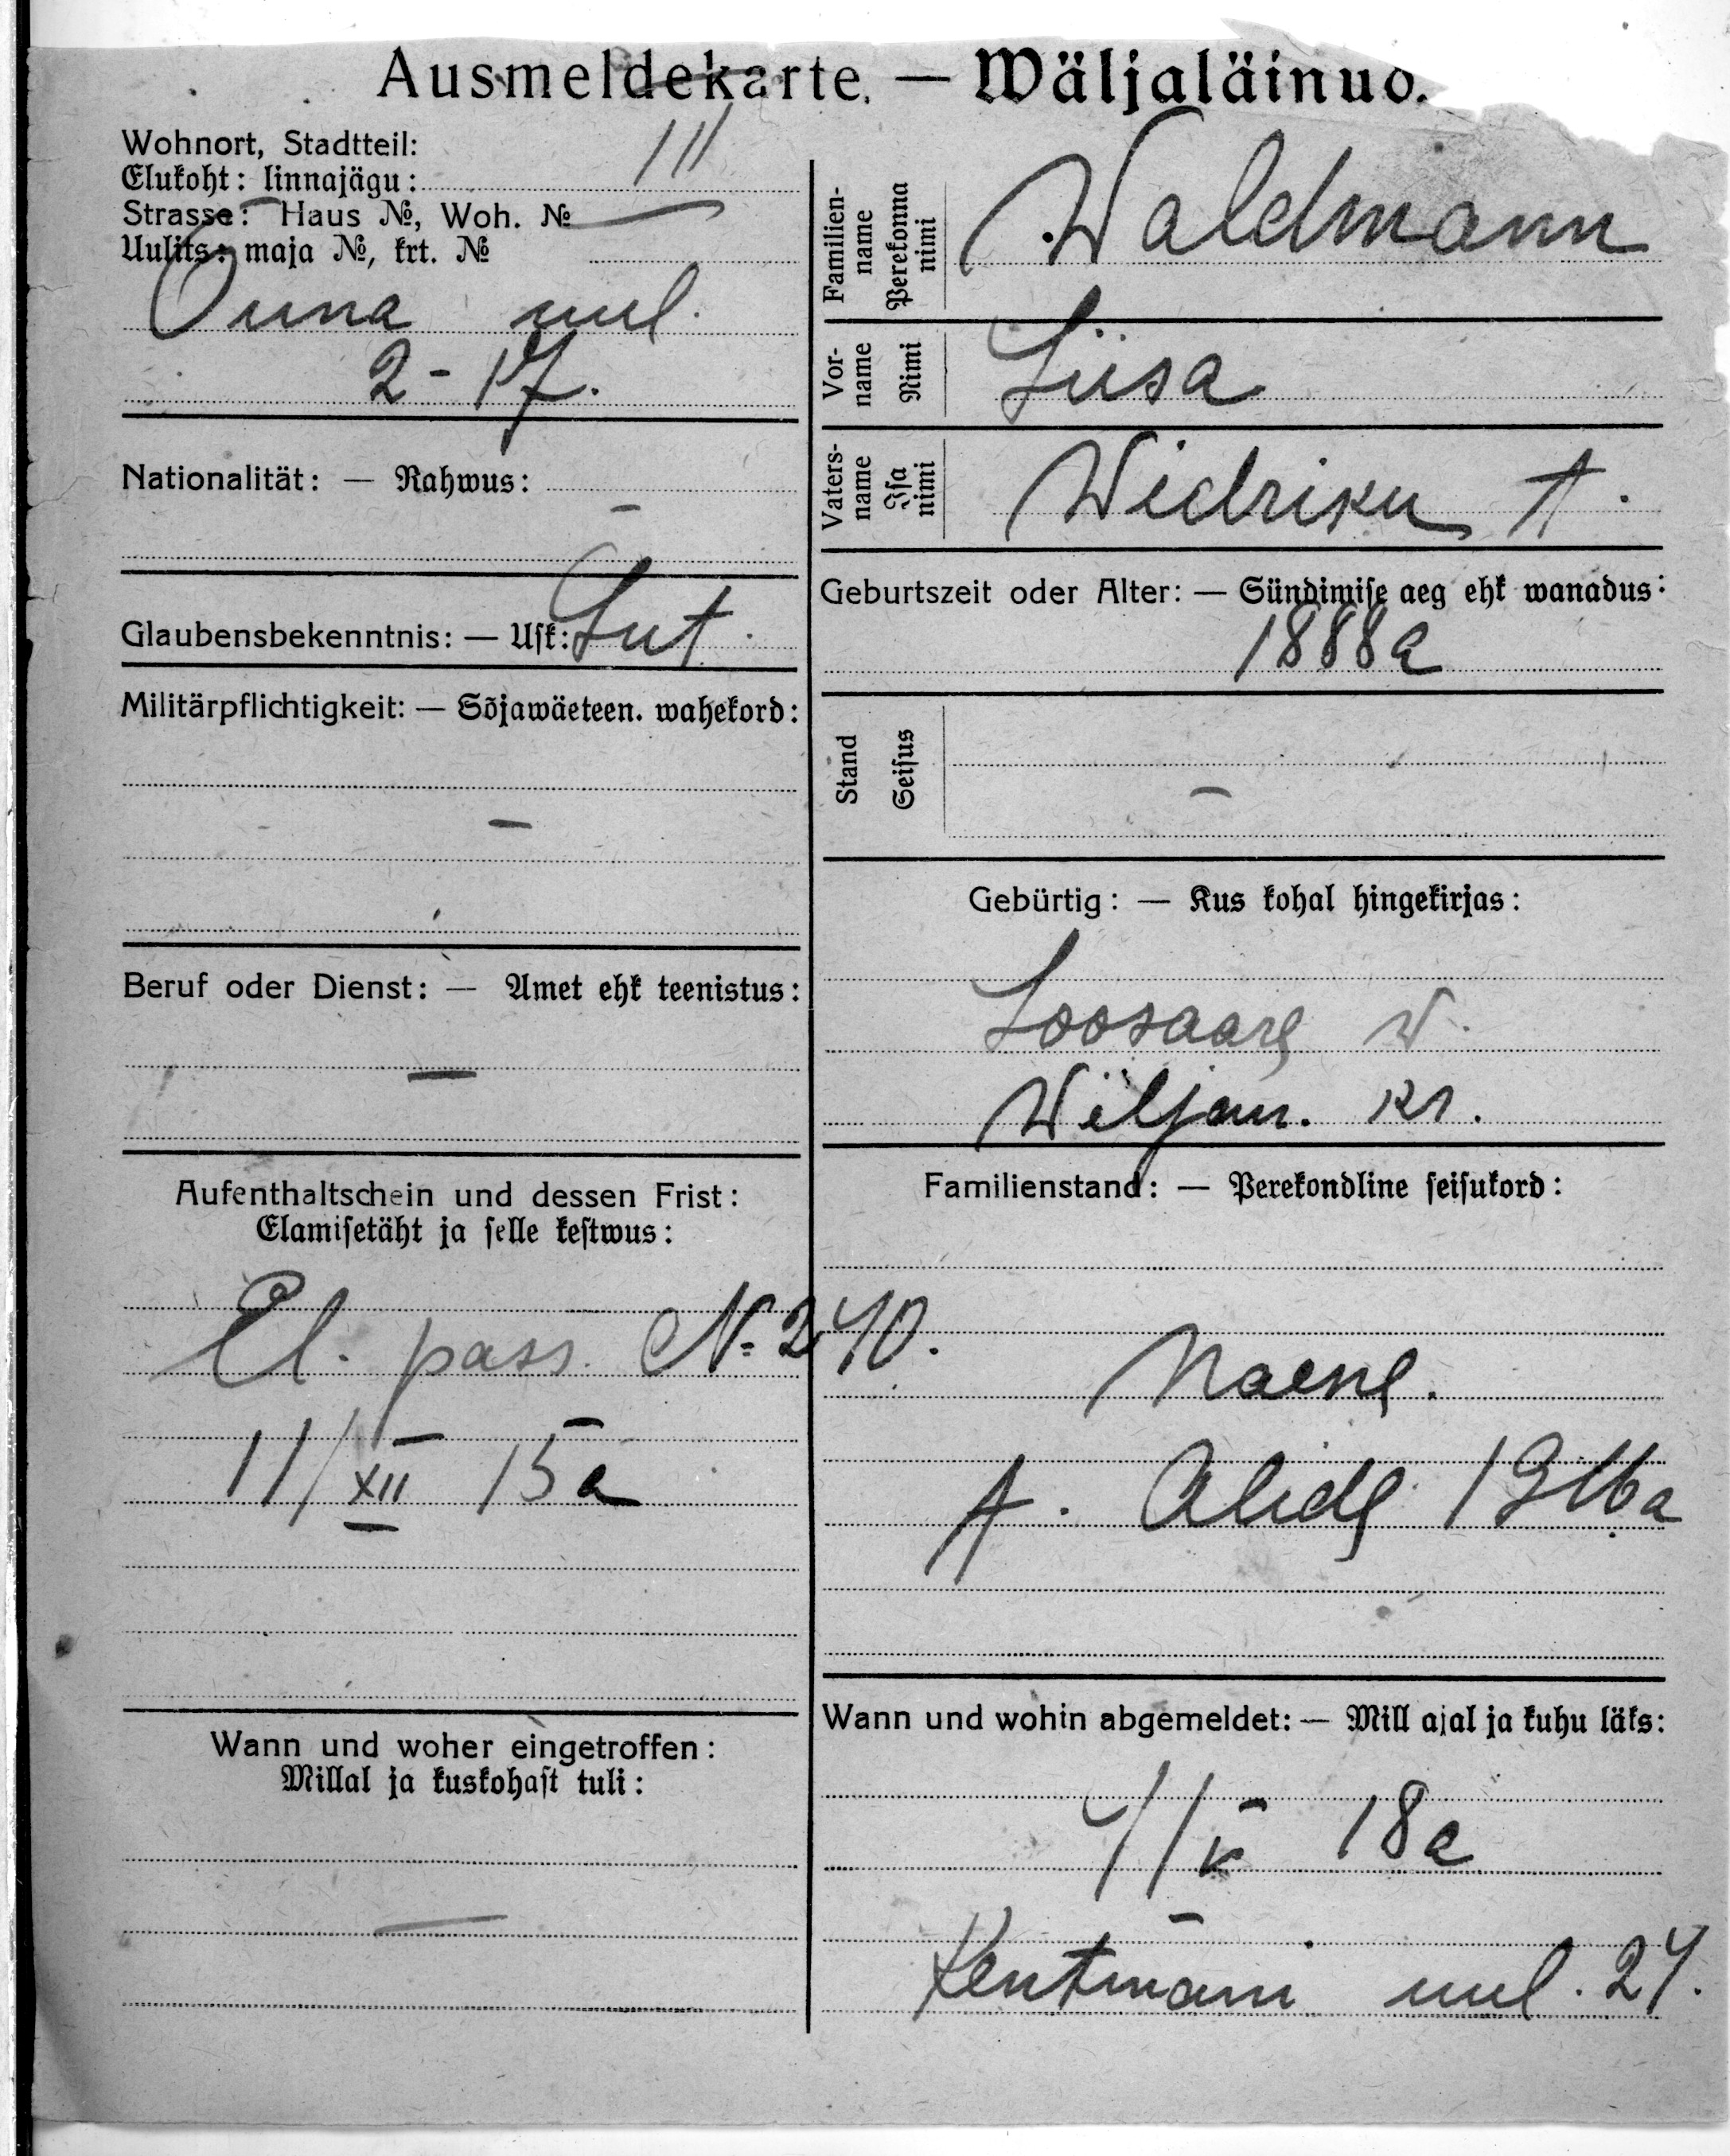 Ausmeldekarte. — Wäljaläinuo.
Wohnort, Stadtteil:
Elukoht: linnajägu: III
Strasse: Haus №, Woh. №
Uulits: maja №, krt. №
Õuna uul.
2 - 17.
Nationalität: — Rahwus:
–
Glaubensbekenntnis: — Usk: Lut.
Militärpflichtigkeit: — Sõjawäeteen. wahekord:
–
Beruf oder Dienst: — Amet ehk teenistus:
—
Aufenthaltschein und dessen Frist:
Elamisetäht ja selle kestwus:
El. pass. № 240.
11/XII 15 a
Wann und woher eingetroffen:
Millal ja kuskohast tuli:
—
Familien-
name
Perekonna
nimi
Waldmann
Vor-
name
Nimi
Liisa
Vaters-
name
Isa
nimi
Widriku t.
Geburtszeit oder Alter: — Sündimise aeg ehk wanadus:
1888 a
Stand
Seisus
–
Gebürtig: — Kus kohal hingekirjas:
Loosaare w.
Wiljan. kr.
Familienstand: — Perekondline seisukord:
Naene.
t. Alide 1916 a
Wann und wohin abgemeldet: — Mill ajal ja kuhu läks:
4/V 18 a
Kentmani uul. 24.